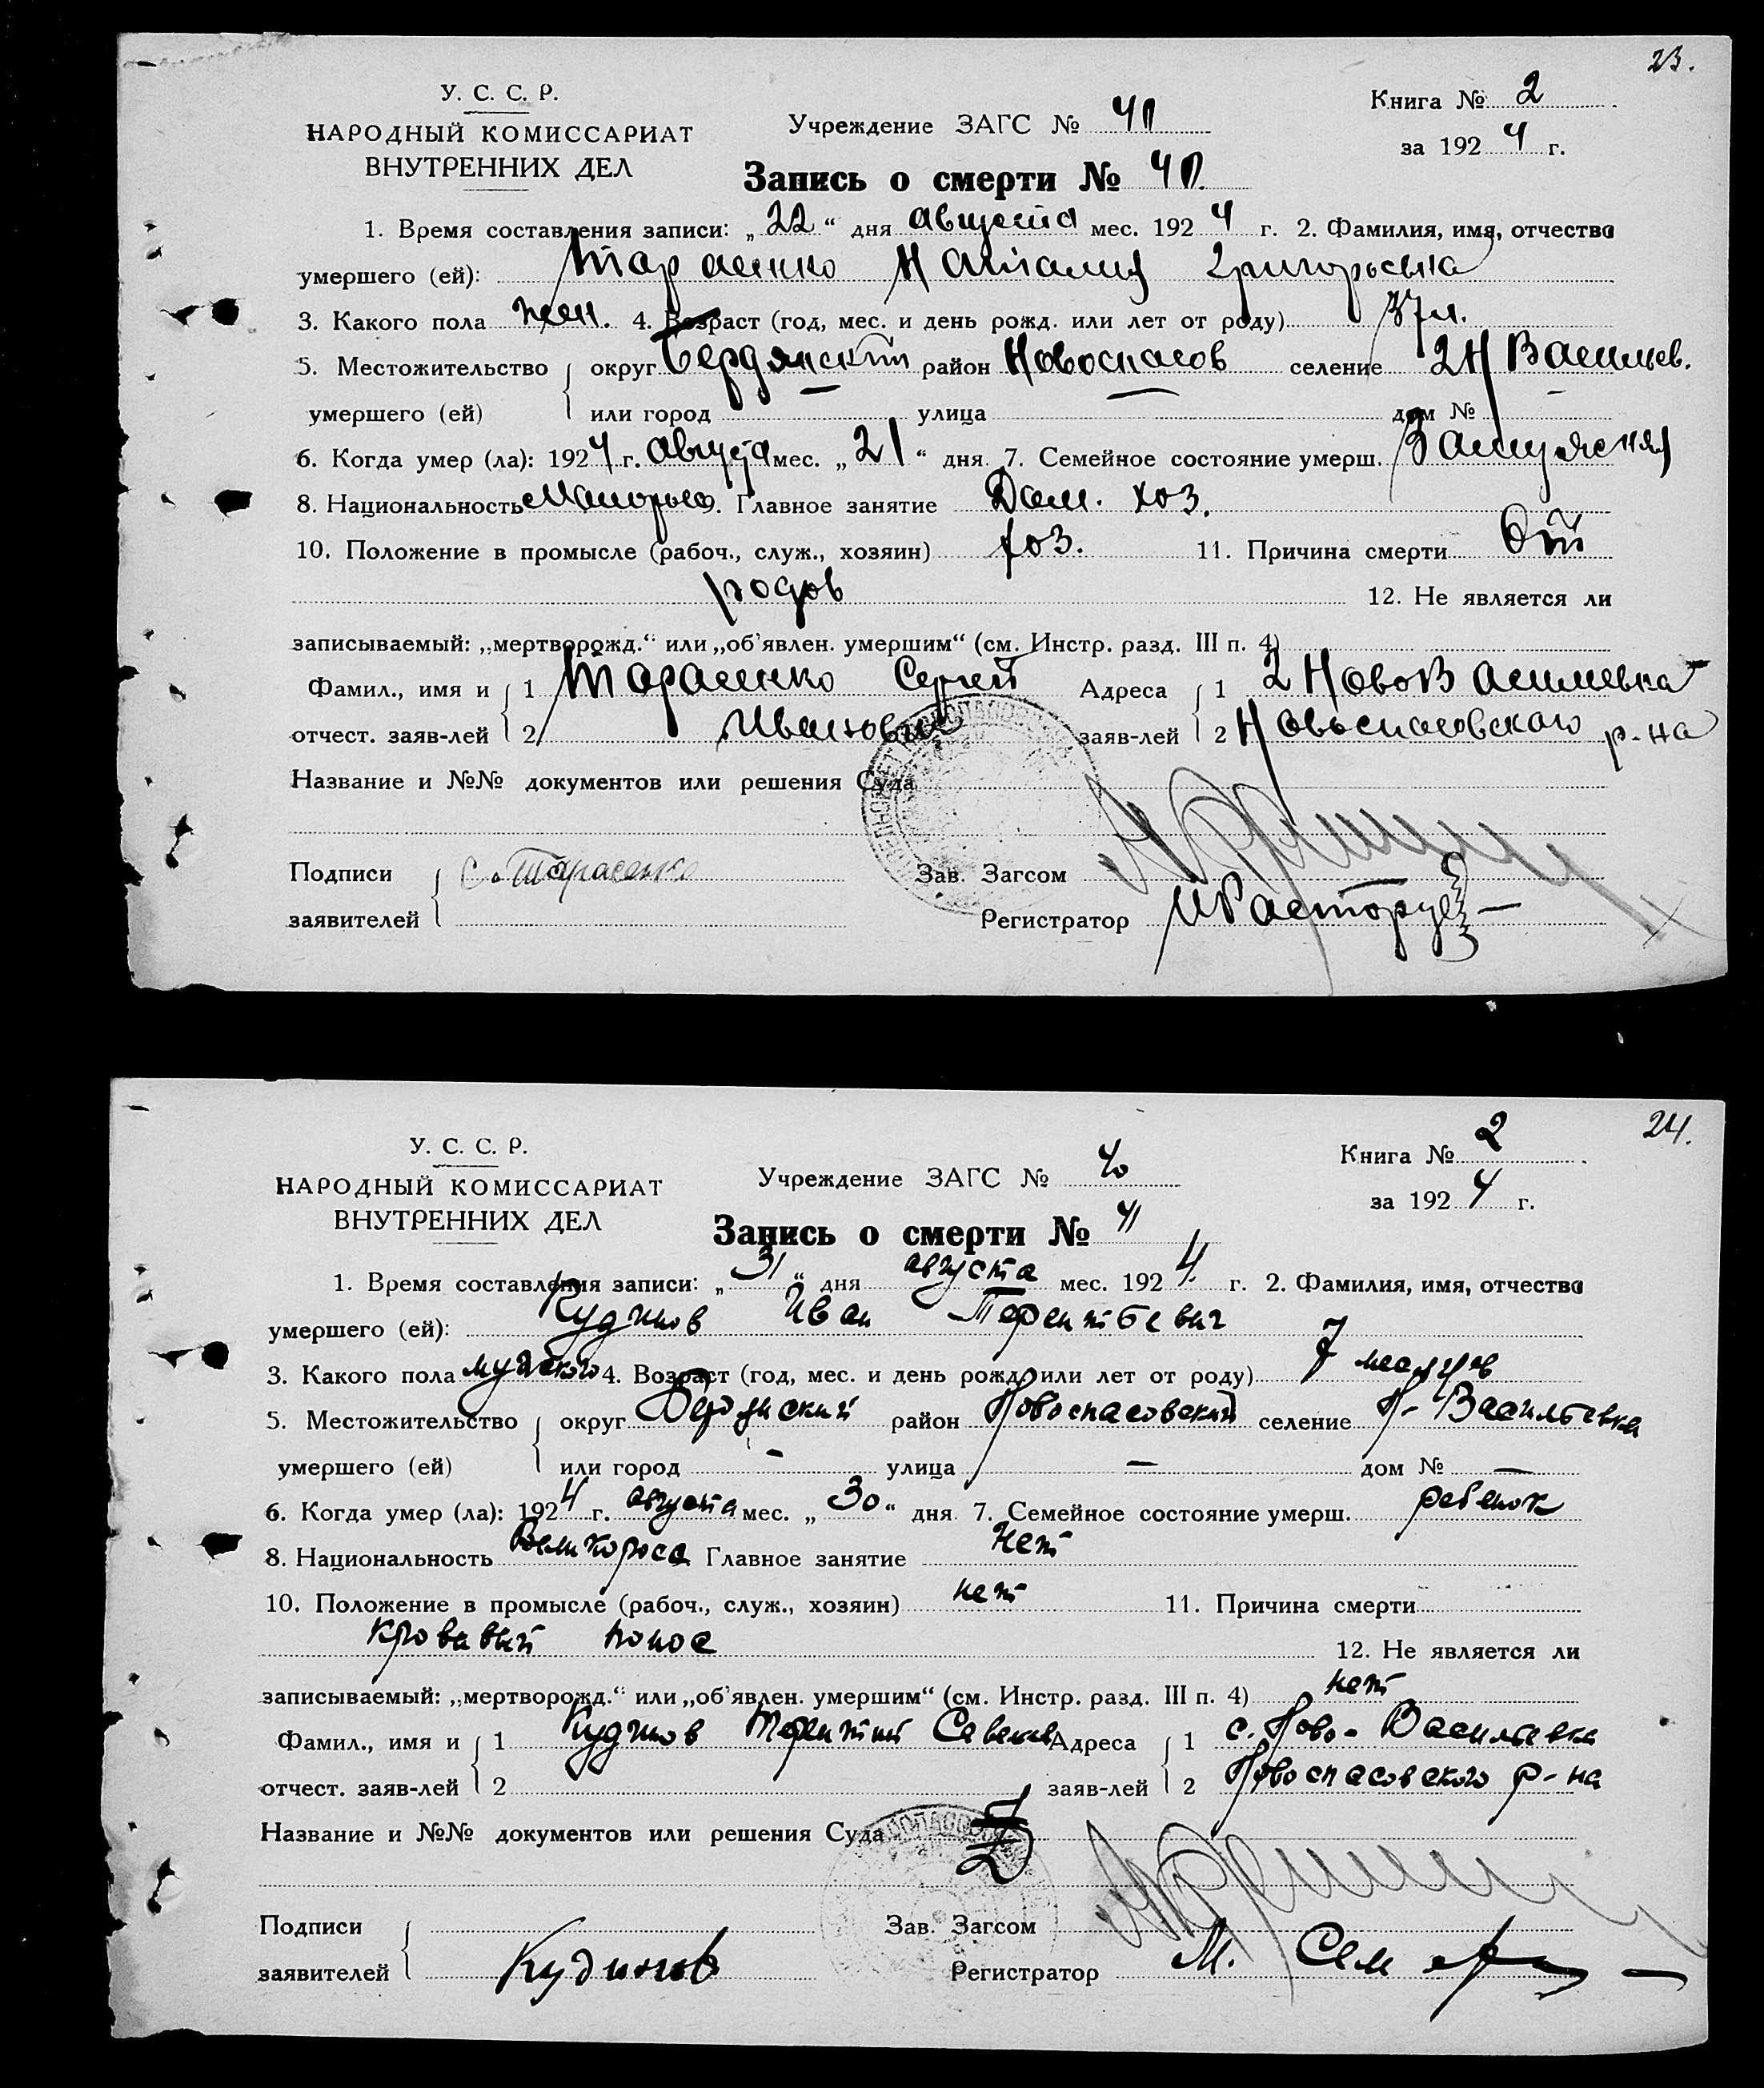 23.
У. С. С. Р.
НАРОДНЫЙ КОМИССАРИАТ
ВНУТРЕННИХ ДЕЛ
Учреждение ЗАГС № 40
Книга № 2
за 1924 г.
Запись о смерти № 40.
1. Время составления записи: „22“ дня августа мес. 1924 г. 2. Фамилия, имя, отчество
умершего (ей): Тарасенко Наталия Григорьевна
3. Какого пола жен. 4. Возраст (год, мес. и день рожд. или лет от роду) 37 л.
5. Местожительство округ Бердянский район Новоспасов селение 2 Н Васильев.
умершего (ей) или город — улица — дом № —
6. Когда умер (ла): 1924 г. августа мес. „21“ дня. 7. Семейное состояние умерш. Замужняя
8. Национальность Малорос. 9. Главное занятие Дом. хоз.
10. Положение в промысле (рабоч., служ., хозяин) хоз. 11. Причина смерти От
родов 12. Не является ли
записываемый: „мертворожд.“ или „об'явлен. умершим“ (см. Инстр. разд. III п. 4)
Фамил., имя и 1 Тарасенко Сергей Адреса 1 2 Ново Васильевка
отчест. заяв-лей 2 Иванович заяв-лей 2 Новоспасовского р-на
Название и №№ документов или решения Суда
Подписи С. Тарасенко Зав. Загсом
заявителей Регистратор
24.
У. С. С. Р.
НАРОДНЫЙ КОМИССАРИАТ
ВНУТРЕННИХ ДЕЛ
Учреждение ЗАГС № 40
Книга № 2
за 1924 г.
Запись о смерти № 41
1. Время составления записи: „31“ дня августа мес. 1924 г. 2. Фамилия, имя, отчество
умершего (ей): Кудинов Иван Терентьевич
3. Какого пола мужского 4. Возраст (год, мес. и день рожд. или лет от роду) 7 месяцев
5. Местожительство округ Бердянский район Новоспасовский селение Н-Васильевка
умершего (ей) или город — улица — дом № —
6. Когда умер (ла): 1924 г. августа мес. „30“ дня. 7. Семейное состояние умерш. ребенок
8. Национальность Великоросс Главное занятие Нет
10. Положение в промысле (рабоч., служ., хозяин) нет 11. Причина смерти
Кровавый понос 12. Не является ли
записываемый: „мертворожд.“ или „об'явлен. умершим“ (см. Инстр. разд. III п. 4) нет
Фамил., имя и 1 Кудинов Терентий Адреса 1 с. Ново-Васильевка
отчест. заяв-лей 2 заяв-лей 2 Новоспасовского р-на
Название и №№ документов или решения Суда
Подписи Зав. Загсом
заявителей Кудинов Регистратор М.